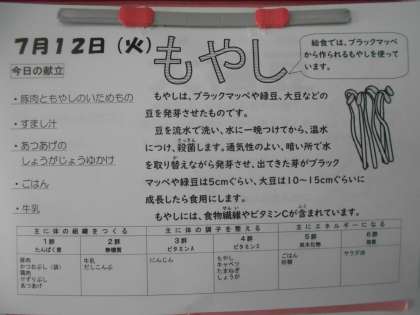 7月12日（火）
もやし
給食では、ブラックマッペ
から作られるもやしを使って
います。
今日の献立
・豚肉ともやしのいためもの
・すまし汁
・あつあげの
しょうがじょうゆかけ
・ごはん
・牛乳
もやしは、ブラックマッペや緑豆、大豆などの
豆を発芽させたものです。
豆を流水で洗い、水に一晩つけてから、温水
につけ、殺菌します。通気性のよい、暗い所で水
を取り替えながら発芽させ、出てきた芽がブラック
マッペや緑豆は5cmぐらい、大豆は10～15cmぐらいに
成長したら食用にします。
もやしには、食物繊維やビタミンCが含まれています。
主に体の組織をつくる
主に体の調子を整える
主にエネルギーになる
1群
たんぱく質
2群
無機質
3群
ビタミンA
4群
ビタミンC
5群
炭水化物
6群
脂質
豚肉
かつおぶし（厚）
鶏肉
けずりぶし
あつあげ
牛乳
だしこんぶ
にんじん
もやし
キャベツ
たまねぎ
しょうが
ごはん
砂糖
サラダ油